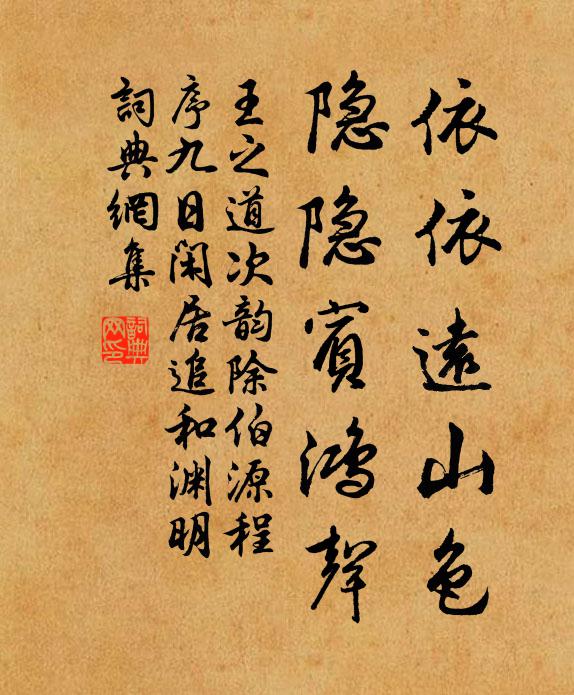 依依遠山色
隐隐賓鸿聲
王之道次韵除伯源程
序九日閑居追和渊明
詞典網集
詞典
网印